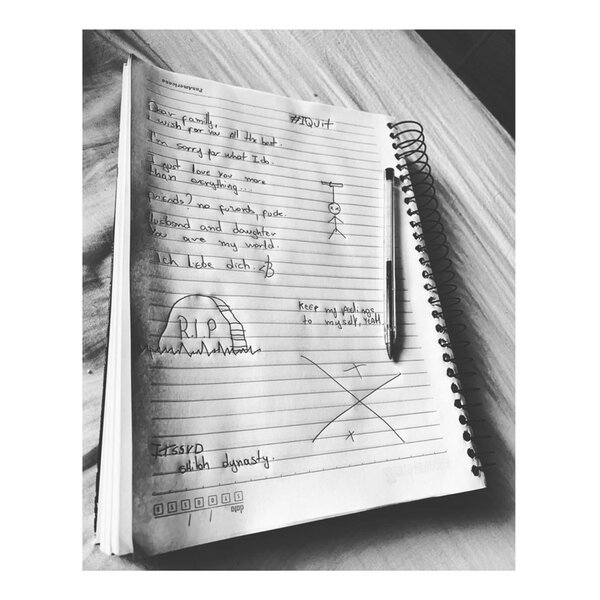 PanAmericana
#IQuit
Dear family,
I wish for you all the best.
I'm sorry for what I do.
I just love you more
than everything...
friends? no
Husband and daughter
You are my world.
Ich liebe dich. <3
R.I.P
Keep my feelings
to myself, yeah
dynasty.
data
S T Q Q S S D